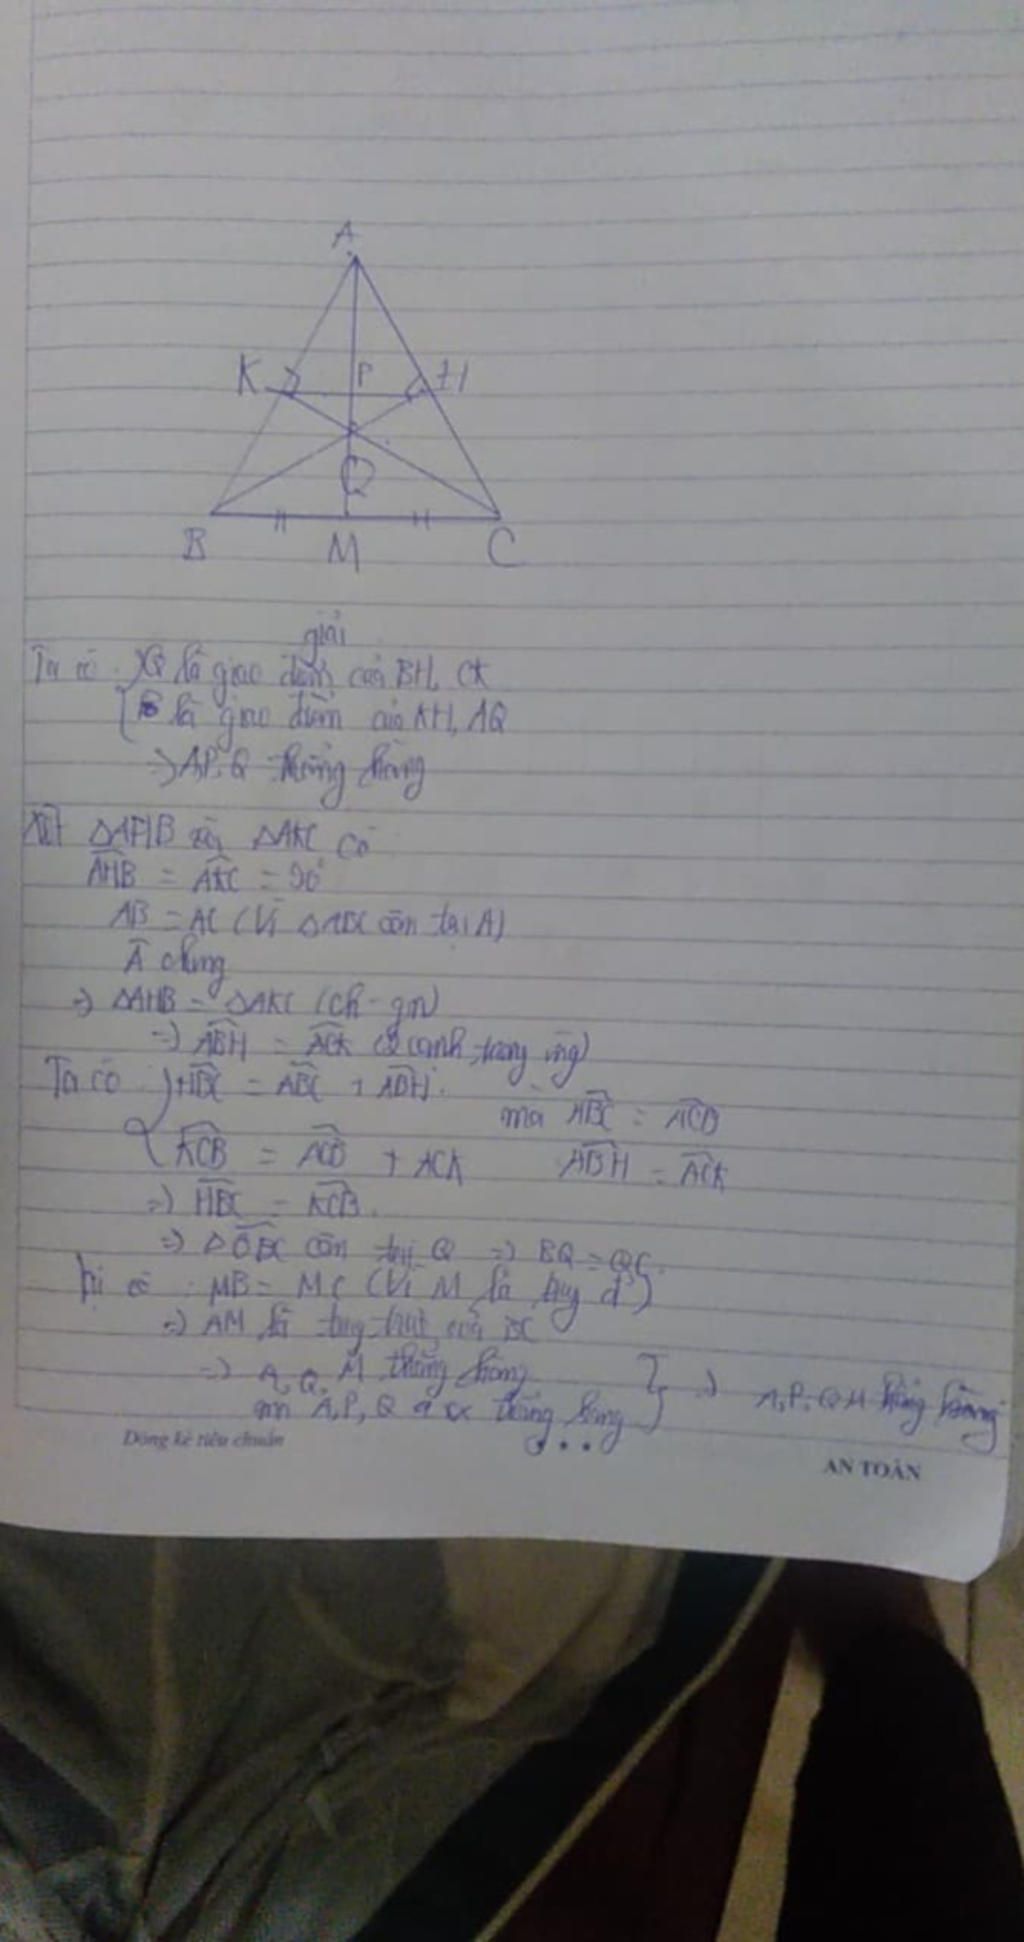 A
K
P
H
Q
B
M
C
giải
Ta có: Q là giao điểm của BH, CK
là giao điểm của KH, AQ
=> A,P,Q thẳng hàng
Xét ΔAHB và ΔAKC có
AHB = AKC = 90°
AB = AC (Vì ΔABC cân tại A)
Â chung
=> ΔAHB = ΔAKC (ch - gn)
=> ABH = ACK (2 cạnh tương ứng)
Ta có: HBC = ABC + ABH
mà ABC = ACB
KCB = ACB + ACK
ABH = ACK
=> HBC = KCB
=> ΔQBC cân tại Q => BQ = QC
có: MB = MC (Vì M là )
=> AM là của BC
=> A,Q,M thẳng hàng
A,P,Q thẳng hàng
=> A,P,Q,M thẳng hàng
Dòng kẻ tiêu chuẩn
AN TOÀN